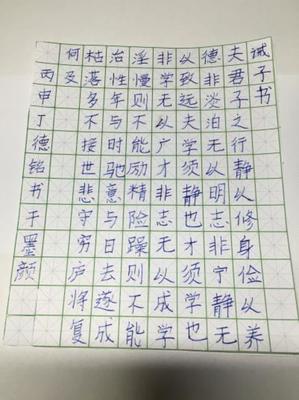 诫子书
夫君子之行静以修身俭以养
德非淡泊无以明志非宁静无
以致远夫学须静也才须学也
非学无以广才非志无以成学
淫慢则不能励精险躁则不能
治性年与时驰意与日去遂成
枯落多不接世悲守穷庐将复
何及
丙申丁德铭书于墨颜